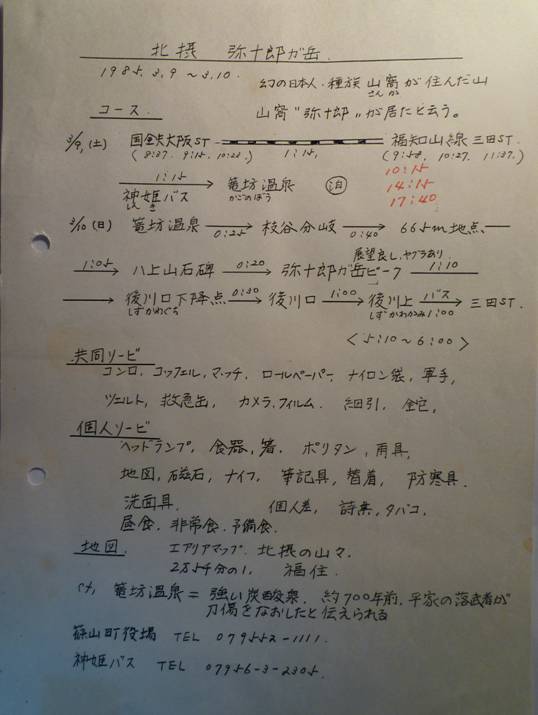 北摂 弥十郎が岳.
1985.3.9～3.10.
幻の日本人・種族 山窩が住んだ山
さんか
コース
山窩"弥十郎"が居たと云う。
3/9(土) 国鉄大阪ST 福知山線 三田ST.
(8:37. 9:15. 10:23.) 1:15, (9:58. 10:27. 11:37.)
10:15
14:15
17:40
1:15 篭坊温泉 泊
神姫バス かごのぼう
しんき
3/10(日) 篭坊温泉 0:25 枝谷分岐 0:40 665m地点
展望良し,ヤブあり
1:05 八上山石碑 0:20 弥十郎が岳ピーク 1:10
後川口下降点 0:30 後川口 1:00 後川上 バス 三田ST.
しずかわぐち しずかわかみ 1:00
<5:10～6:00>
共同リービ
コンロ, コッフェル, マッチ, ロールペーパー, ナイロン袋, 軍手,
ツェルト, 救急缶, カメラ,フィルム. 細引,
個人リービ
ヘッドランプ, 食器,箸. ポリタン, 雨具,
地図, 磁石, ナイフ, 筆記具, 替着, 防寒具.
洗面具. 個人差, 詩集, タバコ,
昼食. 非常食. 予備食.
地図. エアリアマップ. 北摂の山々.
2万5千分の1. 福住.
篭坊温泉=強い炭酸泉. 約700年前.平家の落武者が
刀傷をなおしたと伝えられる
篠山町役場 TEL 079552-1111.
神姫バス TEL 07956-3-2305.